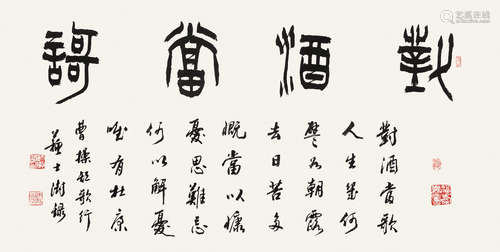 對酒當歌
對酒當歌
人生幾何
譬如朝露
去日苦多
慨當以慷
憂思難忘
何以解憂
唯有杜康
曹操短歌行
蘇士澍錄